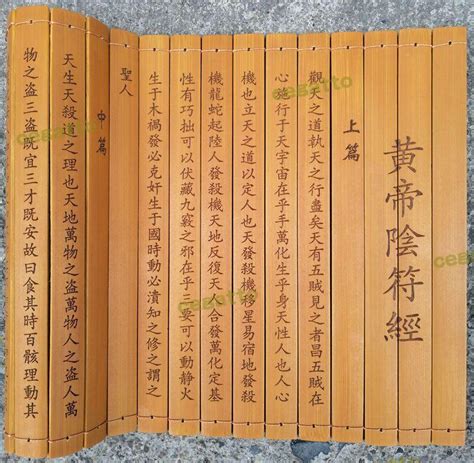 黃帝陰符經
上篇
觀天之道執天之行盡矣天有五賊見之者昌五賊在
心施行于天宇宙在乎手萬化生乎身天性人也人心
機也立天之道以定人也天發殺機移星易宿地發殺
機龍蛇起陸人發殺機天地反復天人合發萬化定基
性有巧拙可以伏藏九竅之邪在乎三要可以動靜火
生于木禍發必克奸生于國時動必潰知之修之謂之
聖人
中篇
天生天殺道之理也天地萬物之盜萬物人之盜人萬
物之盜三盜既宜三才既安故曰食其時百骸理動其